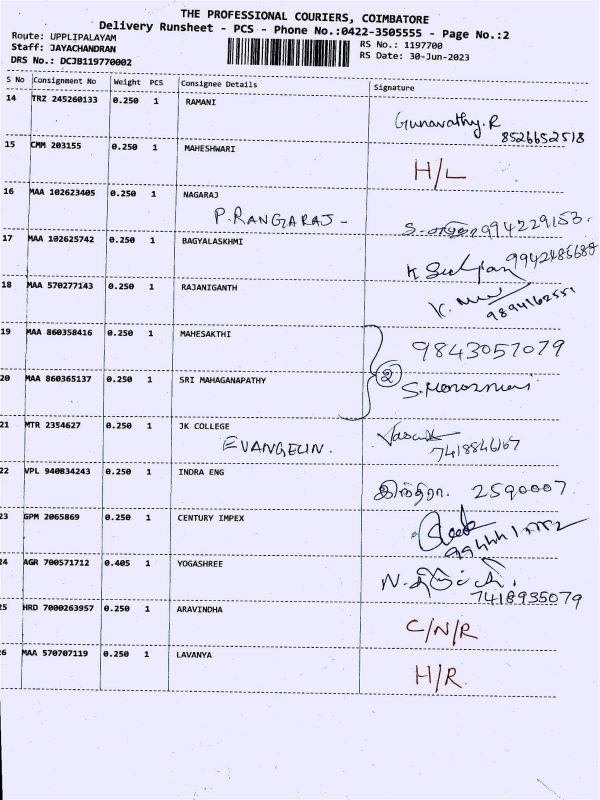 THE PROFESSIONAL COURIERS, COIMBATORE
Delivery Runsheet - PCS - Phone No.:0422-3505555 - Page No.:2
Route: UPPLIPALAYAM
Staff: JAYACHANDRAN
DRS No.: DCJB119770002
RS No.: 1197700
RS Date: 30-Jun-2023
S No Consignment No Weight PCS Consignee Details Signature
14 TRZ 245260133 0.250 1 RAMANI
Gunavathy.R
8526652518
15 CMM 203155 0.250 1 MAHESHWARI
H/L
16 MAA 102623405 0.250 1 NAGARAJ
P.RANGARAJ - S. 994229153.
17 MAA 102625742 0.250 1 BAGYALASKHMI
9942485688
K
18 MAA 570277143 0.250 1 RAJANIGANTH
K.
9894162551
19 MAA 860358416 0.250 1 MAHESAKTHI
9843057079
20 MAA 860365137 0.250 1 SRI MAHAGANAPATHY
2
21 MTR 2354627 0.250 1 JK COLLEGE
EVANGELIN.
7418846167
22 VPL 940834243 0.250 1 INDRA ENG
இந்திரா. 2590007
23 GPM 2065869 0.250 1 CENTURY IMPEX
24 AGR 700571712 0.405 1 YOGASHREE
N.
7418935079
25 HRD 7000263957 0.250 1 ARAVINDHA
C/N/R
26 MAA 570707119 0.250 1 LAVANYA
H/R